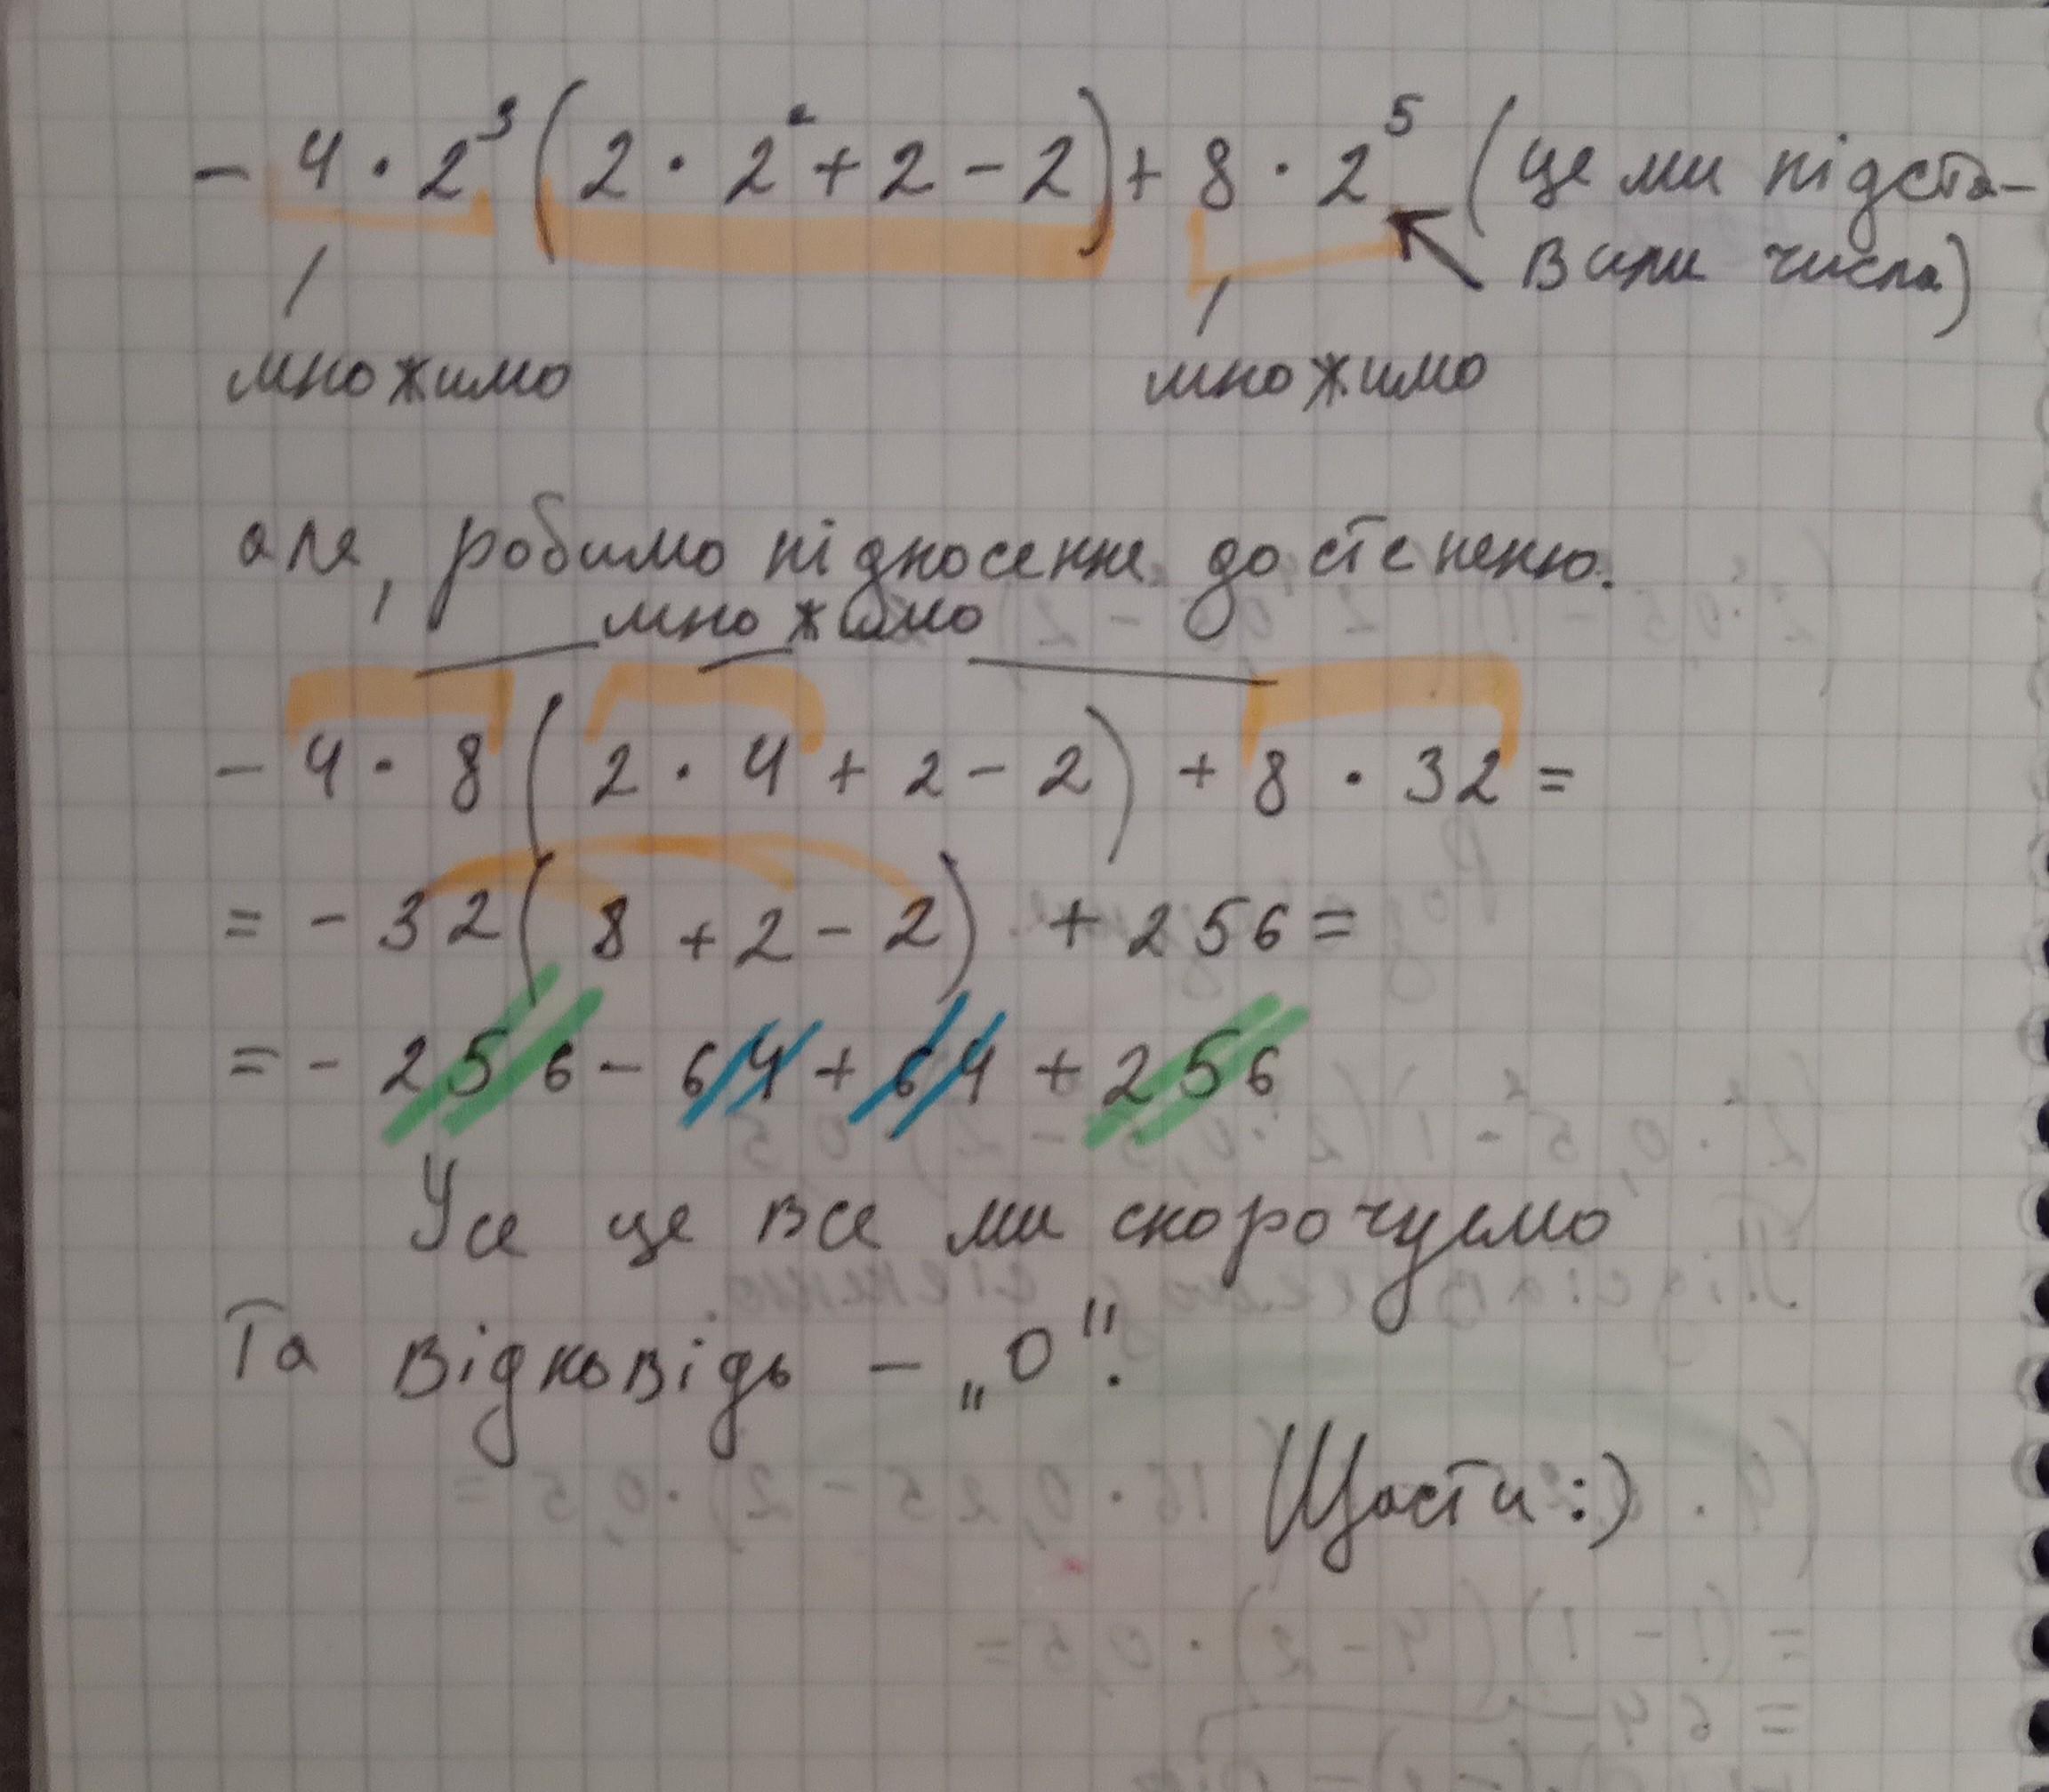 - 4 · 2³ (2 · 2² + 2 - 2) + 8 · 2⁵ (це ми підста-
вили числа)
множимо множимо
але, робимо підносення до степеню.
множимо
- 4 · 8 (2 · 4 + 2 - 2) + 8 · 32 =
= - 32 (8 + 2 - 2) + 256 =
= - 256 - 64 + 64 + 256
Усе це все ми скорочуємо
Та відповідь - „0".
Щасти :)